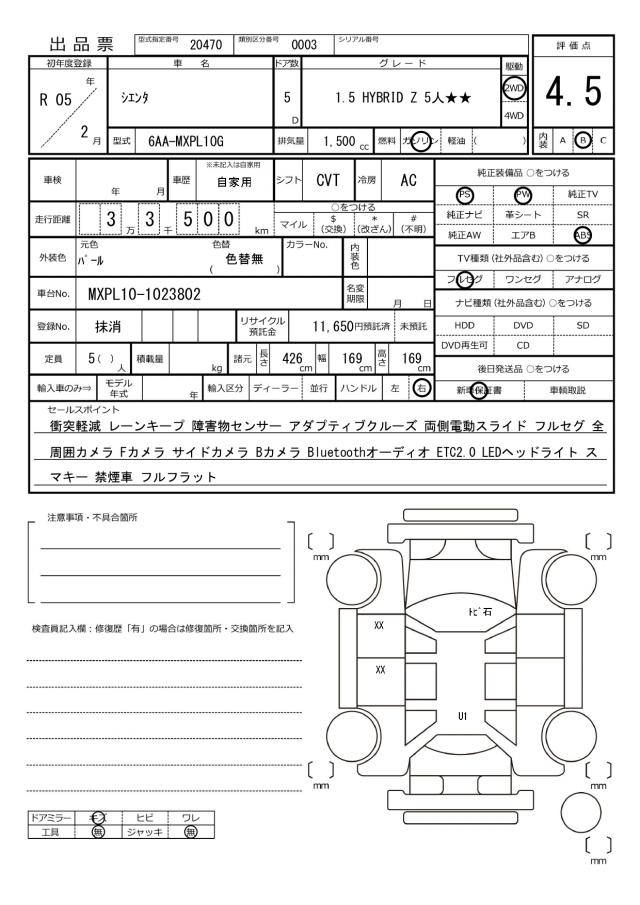 出品票 型式指定番号 20470 類別区分番号 0003 シリアル番号
評価点
4.5
内装 A B C
初年度登録 車名 ドア数 グレード 駆動
R 05 年 2 月 シエンタ 5 D 1.5 HYBRID Z 5人★★ 2WD 4WD
型式 6AA-MXPL10G 排気量 1,500 cc 燃料 ガソリン 軽油 ( )
車検 年 月 車歴 ※未記入は自家用 自家用 シフト CVT 冷房 AC
走行距離 3 万 3 千 5 0 0 km
○をつける
マイル $(交換) *(改ざん) #(不明)
外装色 元色 パール 色替 ( 色替無 ) カラーNo. 内装色
車台No. MXPL10-1023802 名変期限 月 日
登録No. 抹消 リサイクル預託金 11,650円預託済 未預託
定員 5( )人 積載量 kg 諸元 長さ 426 cm 幅 169 cm 高さ 169 cm
輸入車のみ⇒ モデル年式 年 輸入区分 ディーラー 並行 ハンドル 左 右
純正装備品 ○をつける
PS PW 純正TV
純正ナビ 革シート SR
純正AW エアB ABS
TV種類(社外品含む)○をつける
フルセグ ワンセグ アナログ
ナビ種類(社外品含む)○をつける
HDD DVD SD
DVD再生可 CD
後日発送品 ○をつける
新車保証書 車輌取説
セールスポイント
衝突軽減 レーンキープ 障害物センサー アダプティブクルーズ 両側電動スライド フルセグ 全
周囲カメラ Fカメラ サイドカメラ Bカメラ Bluetoothオーディオ ETC2.0 LEDヘッドライト ス
マキー 禁煙車 フルフラット
注意事項・不具合箇所
検査員記入欄：修復歴「有」の場合は修復箇所・交換箇所を記入
ドアミラー キズ ヒビ ワレ
工具 無 ジャッキ 無
mm mm
トビ石
XX
XX
U1
mm mm
mm